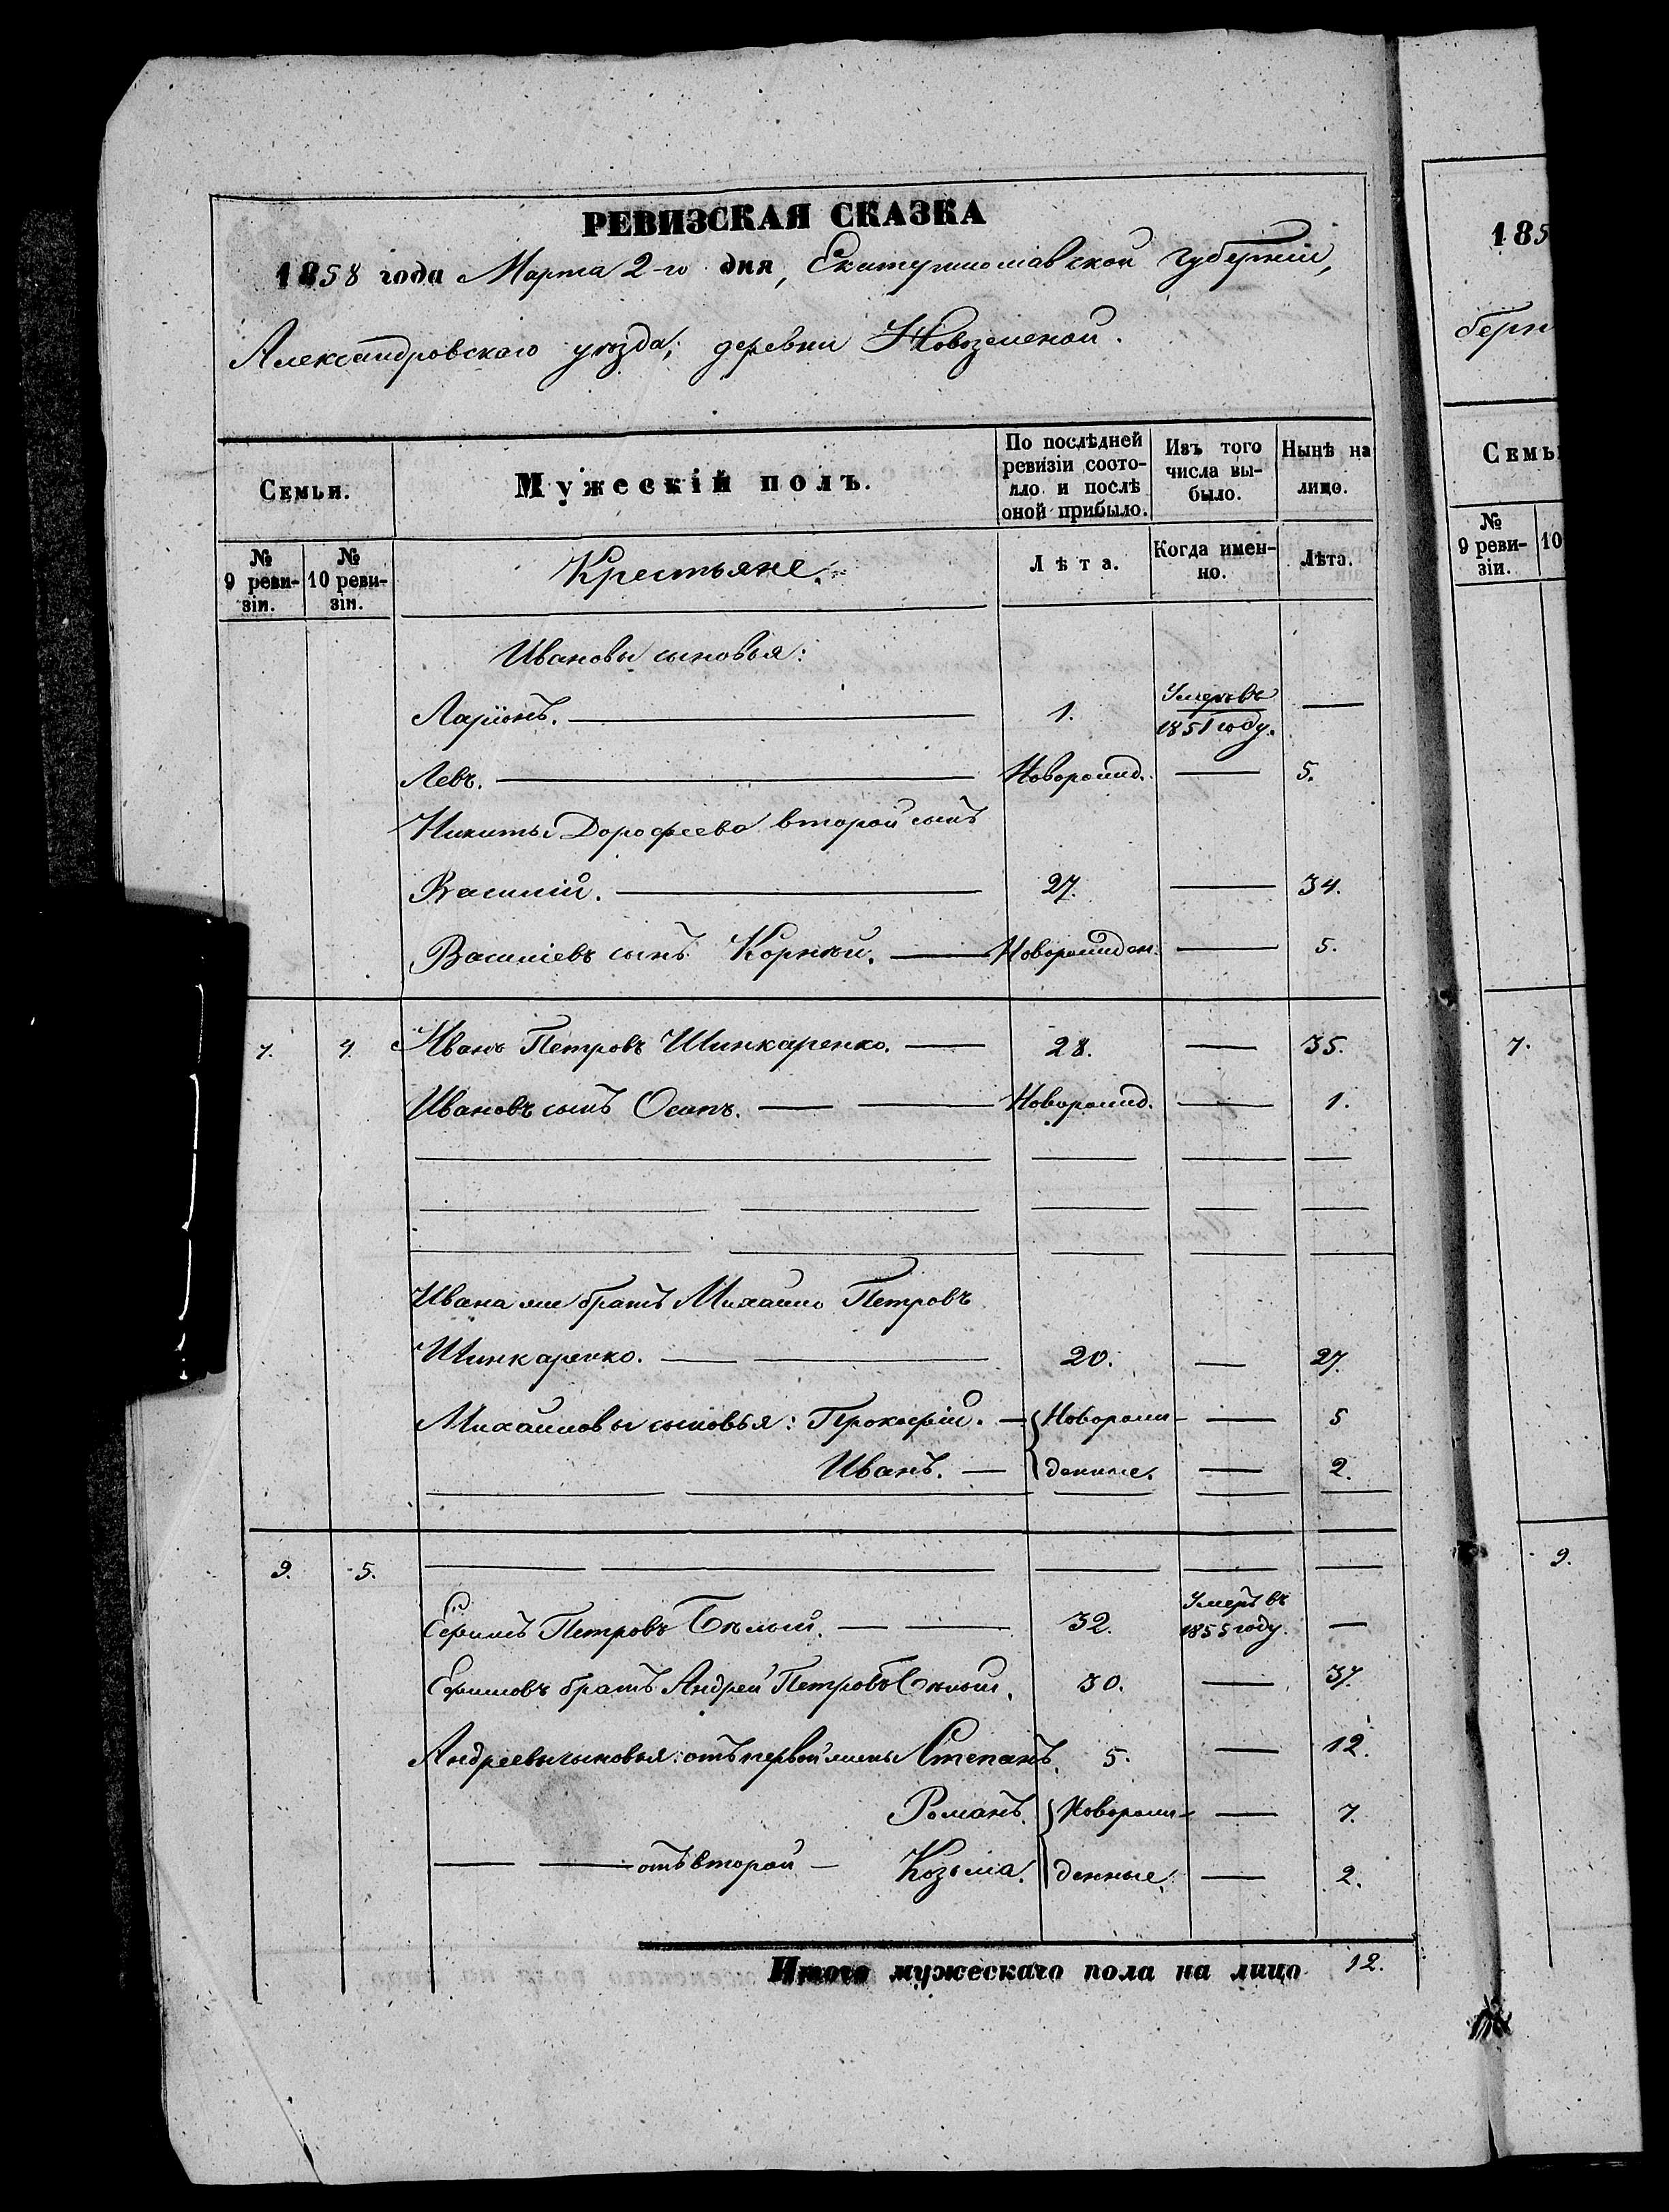 РЕВИЗСКАЯ СКАЗКА
1858 года Марта 2-го дня, Екатеринославской губерніи,
Александровскаго уѣзда, деревни Новозеленой.
Семьи. Мужескій полъ. По послѣдней ревизіи состояло и послѣ оной прибыло. Изъ того числа выбыло. Нынѣ на лицо.
№ 9 ревизіи. № 10 ревизіи. Крестьяне. Лѣта. Когда именно. Лѣта.
Ивановы сыновья:
Ларіонъ. — 1. Умеръ въ 1851 году. —
Левъ. — Новорожд. — 5.
Никиты Дорофеева второй сынъ
Василій. — 27. — 34.
Василіевъ сынъ Корнѣй. — Новорожден. — 5.
7. 4. Иванъ Петровъ Шинкаренко. — 28. — 35.
Ивановъ сынъ Осипъ. — — Новорожд. — 1.
Ивана же братъ Михайло Петровъ
Шинкаренко. — — 20. — 27.
Михайловы сыновья: Прокофій. — Новорож- — 5
Иванъ. — денные. — 2.
9. 5.
Ефимъ Петровъ Бѣлый. — — 32. Умеръ въ 1855 году. —
Ефимовъ братъ Андрей Петровъ Бѣлый. 30. — 37.
Андреевы сыновья: отъ первой жены Степанъ. 5. — 12.
Романъ. Новорож- — 7.
— — отъ второй — Козьма. денные. — 2.
Итого мужескаго пола на лицо 12.
185
берн
Семь
№ 9 ревизіи. 10
7.
9.